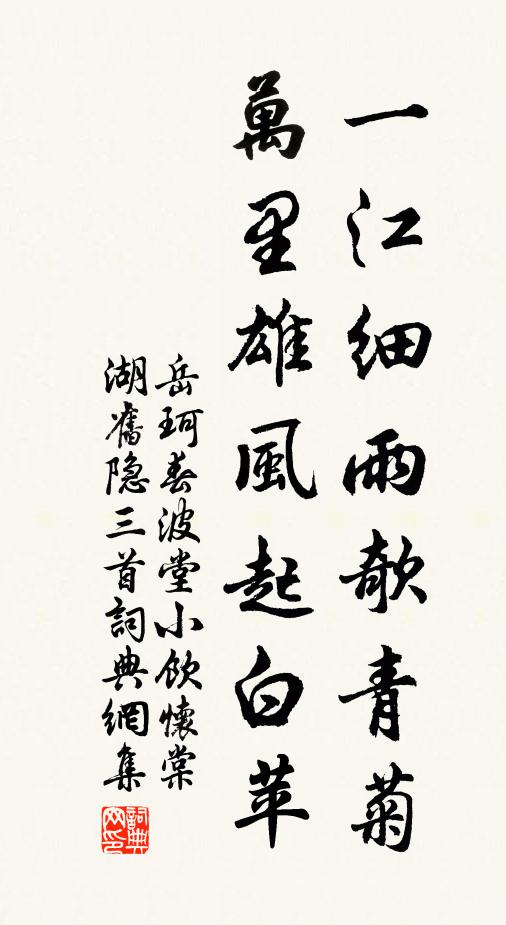 一江細雨欹青菊
萬里雄風起白苹
岳珂春波堂小飲懷棠
湖舊隐三首詞典網集
詞典网印